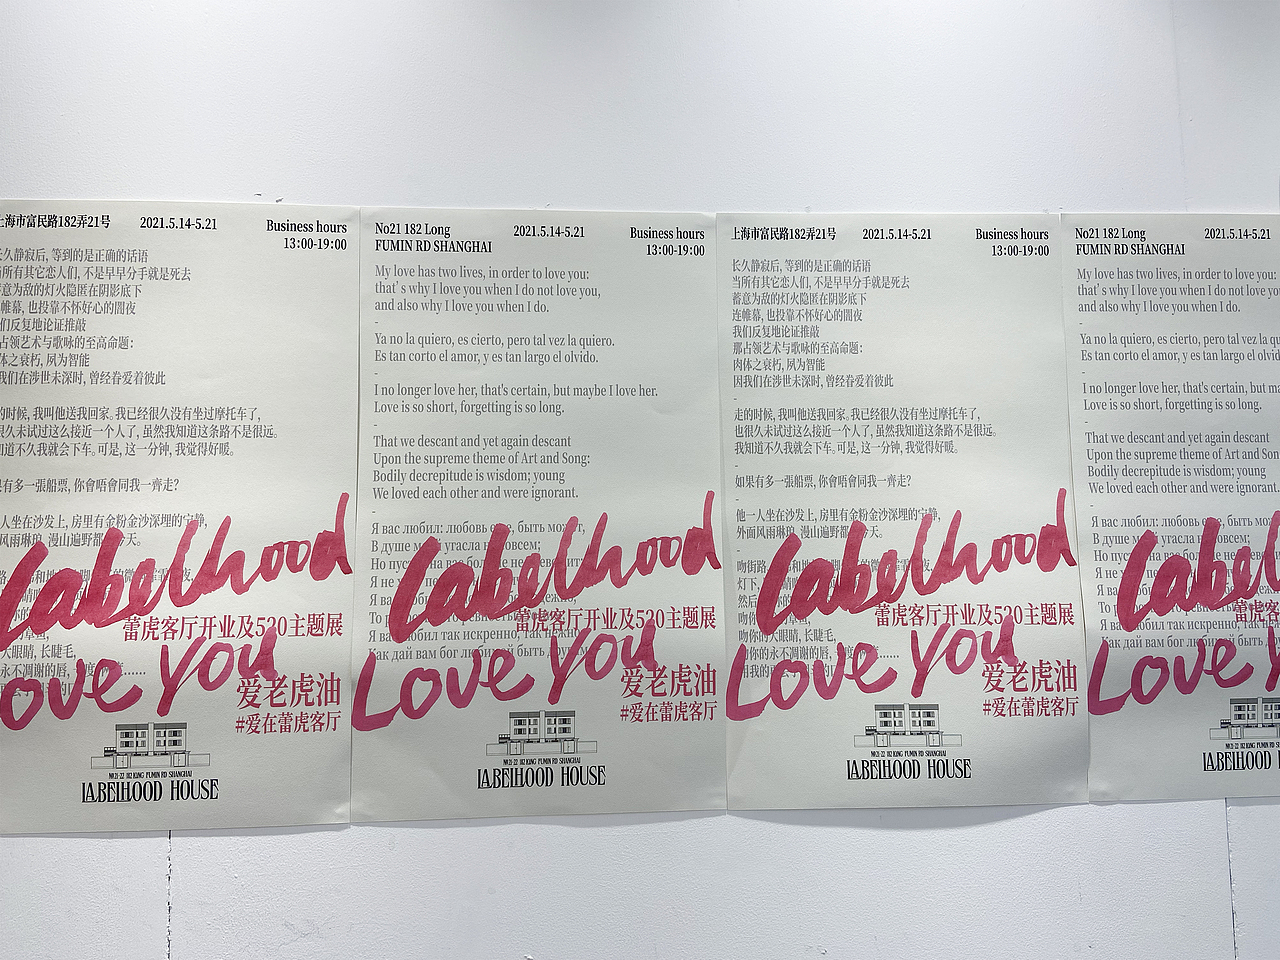 上海市富民路182弄21号
2021.5.14-5.21
Business hours
13:00-19:00
长久静寂后, 等到的是正确的话语
当所有其它恋人们, 不是早早分手就是死去
蓄意为敌的灯火隐匿在阴影底下
帷幕, 也投靠不怀好心的闇夜
们反复地论证推敲
占领艺术与歌咏的至高命题:
体之衰朽, 夙为智能
我们在涉世未深时, 曾经眷爱着彼此
的时候, 我叫他送我回家. 我已经很久没有坐过摩托车了,
很久未试过这么接近一个人了, 虽然我知道这条路不是很远。
知道不久我就会下车. 可是, 这一分钟, 我觉得好暖。
果有多一張船票, 你會唔會同我一齊走?
人坐在沙发上, 房里有金粉金沙深埋的宁静,
风雨琳琅, 漫山遍野都 今天。
Labelhood
蕾虎客厅开业及520主题展
大眼睛, 长睫毛,
永不凋谢的唇,
Love you
爱老虎油
#爱在蕾虎客厅
NO.21-22 182 LONG FUMIN RD SHANGHAI
LABELHOOD HOUSE
No21 182 Long
FUMIN RD SHANGHAI
2021.5.14-5.21
Business hours
13:00-19:00
My love has two lives, in order to love you:
that’ s why I love you when I do not love you,
and also why I love you when I do.
-
Ya no la quiero, es cierto, pero tal vez la quiero.
Es tan corto el amor, y es tan largo el olvido.
-
I no longer love her, that's certain, but maybe I love her.
Love is so short, forgetting is so long.
-
That we descant and yet again descant
Upon the supreme theme of Art and Song:
Bodily decrepitude is wisdom; young
We loved each other and were ignorant.
-
Я вас любил: любовь быть может,
В душе угасла совсем;
Но пусть она вас больше не
Я не
Я вас
Labelhood
蕾虎客厅开业及520主题展
Я вас любил так искренно, так нежно,
Как дай вам бог любимой быть
Love you
爱老虎油
#爱在蕾虎客厅
NO.21-22 182 LONG FUMIN RD SHANGHAI
LABELHOOD HOUSE
上海市富民路182弄21号
2021.5.14-5.21
Business hours
13:00-19:00
长久静寂后, 等到的是正确的话语
当所有其它恋人们, 不是早早分手就是死去
蓄意为敌的灯火隐匿在阴影底下
连帷幕, 也投靠不怀好心的闇夜
我们反复地论证推敲
那占领艺术与歌咏的至高命题:
肉体之衰朽, 夙为智能
因我们在涉世未深时, 曾经眷爱着彼此
-
走的时候, 我叫他送我回家. 我已经很久没有坐过摩托车了,
也很久未试过这么接近一个人了, 虽然我知道这条路不是很远。
我知道不久我就会下车. 可是, 这一分钟, 我觉得好暖。
-
如果有多一張船票, 你會唔會同我一齊走?
-
他一人坐在沙发上, 房里有金粉金沙深埋的宁静,
外面风雨琳琅, 漫山遍野都 今天。
-
吻街路
灯下,
然后
Labelhood
蕾虎客厅开业及520主题展
吻你的大眼睛, 长睫毛,
吻你的永不凋谢的唇,
用我的
Love you
爱老虎油
#爱在蕾虎客厅
NO.21-22 182 LONG FUMIN RD SHANGHAI
LABELHOOD HOUSE
No21 182 Long
FUMIN RD SHANGHAI
2021.5.14-5.21
My love has two lives, in order to love
that’ s why I love you when I do not love
and also why I love you when I do.
-
Ya no la quiero, es cierto, pero tal vez la qu
Es tan corto el amor, y es tan largo el olvido.
-
I no longer love her, that's certain, but ma
Love is so short, forgetting is so long.
-
That we descant and yet again descant
Upon the supreme theme of Art and Song
Bodily decrepitude is wisdom; young
We loved each other and were ignorant.
-
Я вас любил: любовь
В душе угасла
Но пусть она вас
Я не
Я вас
Labelh
蕾虎客
Я вас любил так искренно,
Как дай вам бог любимой быть
Love yo
NO.21-22 182 LONG FUMIN
LABELHOOD